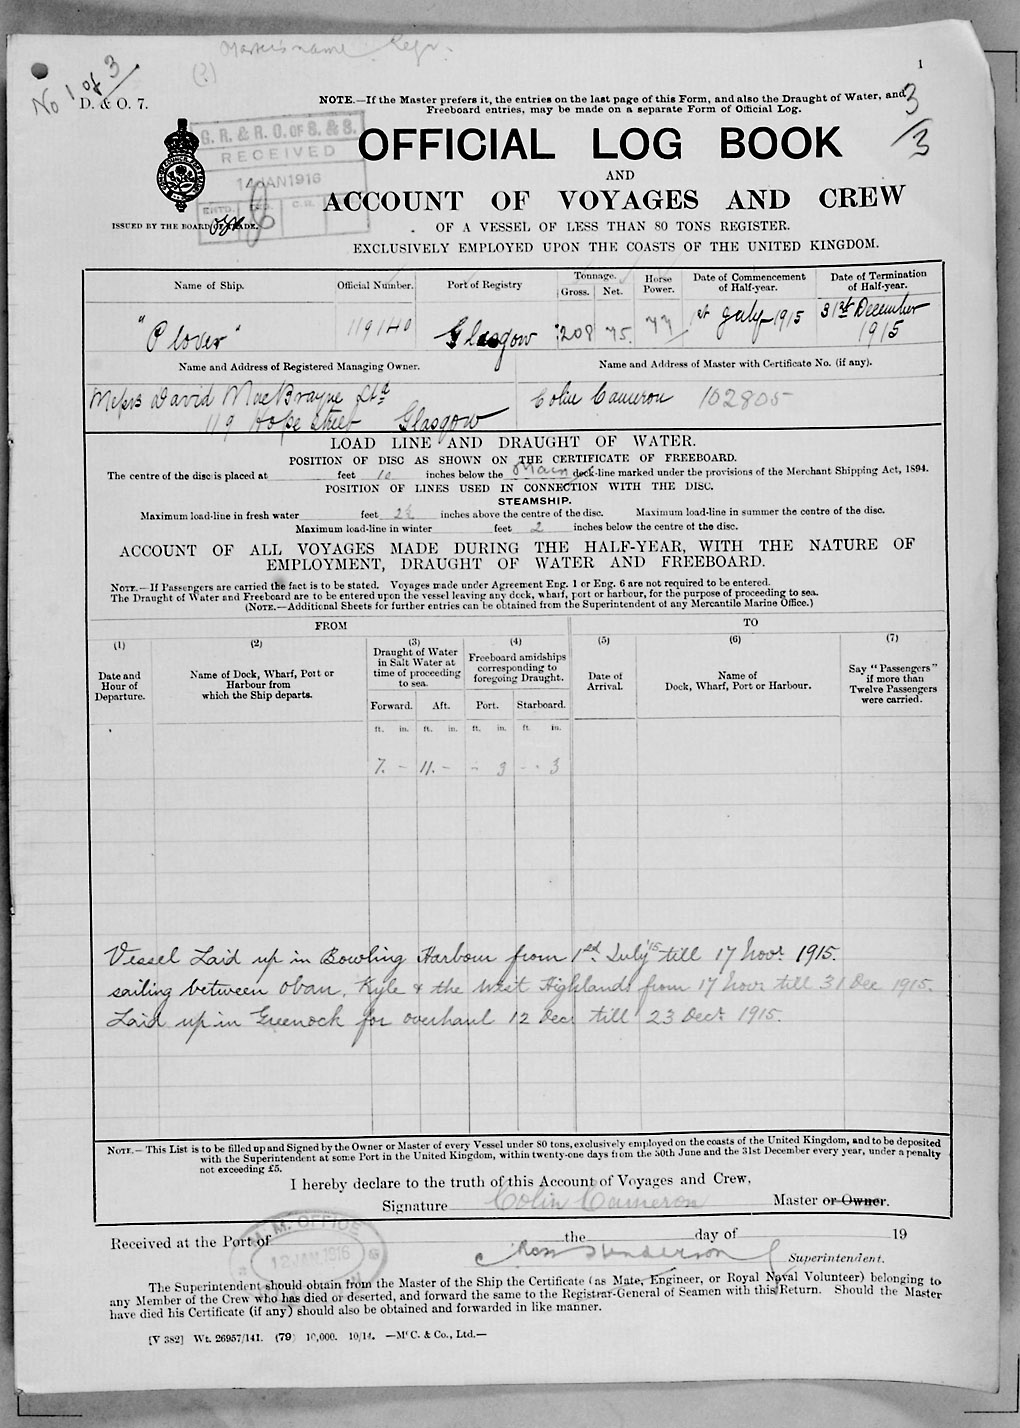 Master's name Regr.
(?)
No 1 of 3
1
D. & O. 7.
NOTE.—If the Master prefers it, the entries on the last page of this Form, and also the Draught of Water, and
Freeboard entries, may be made on a separate Form of Official Log.
3/3
G. R. & R. O. OF S. & S.
RECEIVED
JAN 1916
OFFICIAL LOG BOOK
AND
ACCOUNT OF VOYAGES AND CREW
ISSUED BY THE BOARD OF TRADE.
OF A VESSEL OF LESS THAN 80 TONS REGISTER.
EXCLUSIVELY EMPLOYED UPON THE COASTS OF THE UNITED KINGDOM.
Name of Ship. Official Number. Port of Registry Tonnage. Gross. Net. Horse Power. Date of Commencement of Half-year. Date of Termination of Half-year.
"Plover" 119140 Glasgow 208 75 77 1st July 1915 31st December 1915
Name and Address of Registered Managing Owner. Name and Address of Master with Certificate No. (if any).
Messrs David MacBrayne Ltd Colin Cameron 102805
119 Hope Street Glasgow
LOAD LINE AND DRAUGHT OF WATER.
POSITION OF DISC AS SHOWN ON THE CERTIFICATE OF FREEBOARD.
The centre of the disc is placed at feet 10 inches below the Main deck-line marked under the provisions of the Merchant Shipping Act, 1894.
POSITION OF LINES USED IN CONNECTION WITH THE DISC.
STEAMSHIP.
Maximum load-line in fresh water feet 2½ inches above the centre of the disc. Maximum load-line in summer the centre of the disc.
Maximum load-line in winter feet 2 inches below the centre of the disc.
ACCOUNT OF ALL VOYAGES MADE DURING THE HALF-YEAR, WITH THE NATURE OF
EMPLOYMENT, DRAUGHT OF WATER AND FREEBOARD.
NOTE.—If Passengers are carried the fact is to be stated. Voyages made under Agreement Eng. 1 or Eng. 6 are not required to be entered.
The Draught of Water and Freeboard are to be entered upon the vessel leaving any dock, wharf, port or harbour, for the purpose of proceeding to sea.
(NOTE.—Additional Sheets for further entries can be obtained from the Superintendent of any Mercantile Marine Office.)
FROM TO
(1) (2) (3) (4) (5) (6) (7)
Date and Hour of Departure. Name of Dock, Wharf, Port or Harbour from which the Ship departs. Draught of Water in Salt Water at time of proceeding to sea. Freeboard amidships corresponding to foregoing Draught. Date of Arrival. Name of Dock, Wharf, Port or Harbour. Say "Passengers" if more than Twelve Passengers were carried.
Forward. Aft. Port. Starboard.
ft. in. ft. in. ft. in. ft. in.
7. - 11. - - 3 - - 3
Vessel Laid up in Bowling Harbour from 1st July '15 till 17 Novr 1915.
sailing between Oban, Kyle & the West Highlands from 17 Novr till 31 Dec 1915.
Laid up in Greenock for overhaul 12 Decr till 23 Decr 1915.
NOTE.—This List is to be filled up and Signed by the Owner or Master of every Vessel under 80 tons, exclusively employed on the coasts of the United Kingdom, and to be deposited
with the Superintendent at some Port in the United Kingdom, within twenty-one days from the 30th June and the 31st December every year, under a penalty
not exceeding £5.
I hereby declare to the truth of this Account of Voyages and Crew,
Signature Colin Cameron Master or Owner.
M. M. OFFICE
12 JAN 1916
Received at the Port of the day of 19
Ross Henderson Superintendent.
The Superintendent should obtain from the Master of the Ship the Certificate (as Mate, Engineer, or Royal Naval Volunteer) belonging to
any Member of the Crew who has died or deserted, and forward the same to the Registrar-General of Seamen with this Return. Should the Master
have died his Certificate (if any) should also be obtained and forwarded in like manner.
[V 382] Wt. 26957/141. (79) 10,000. 10/14. —McC. & Co., Ltd.—